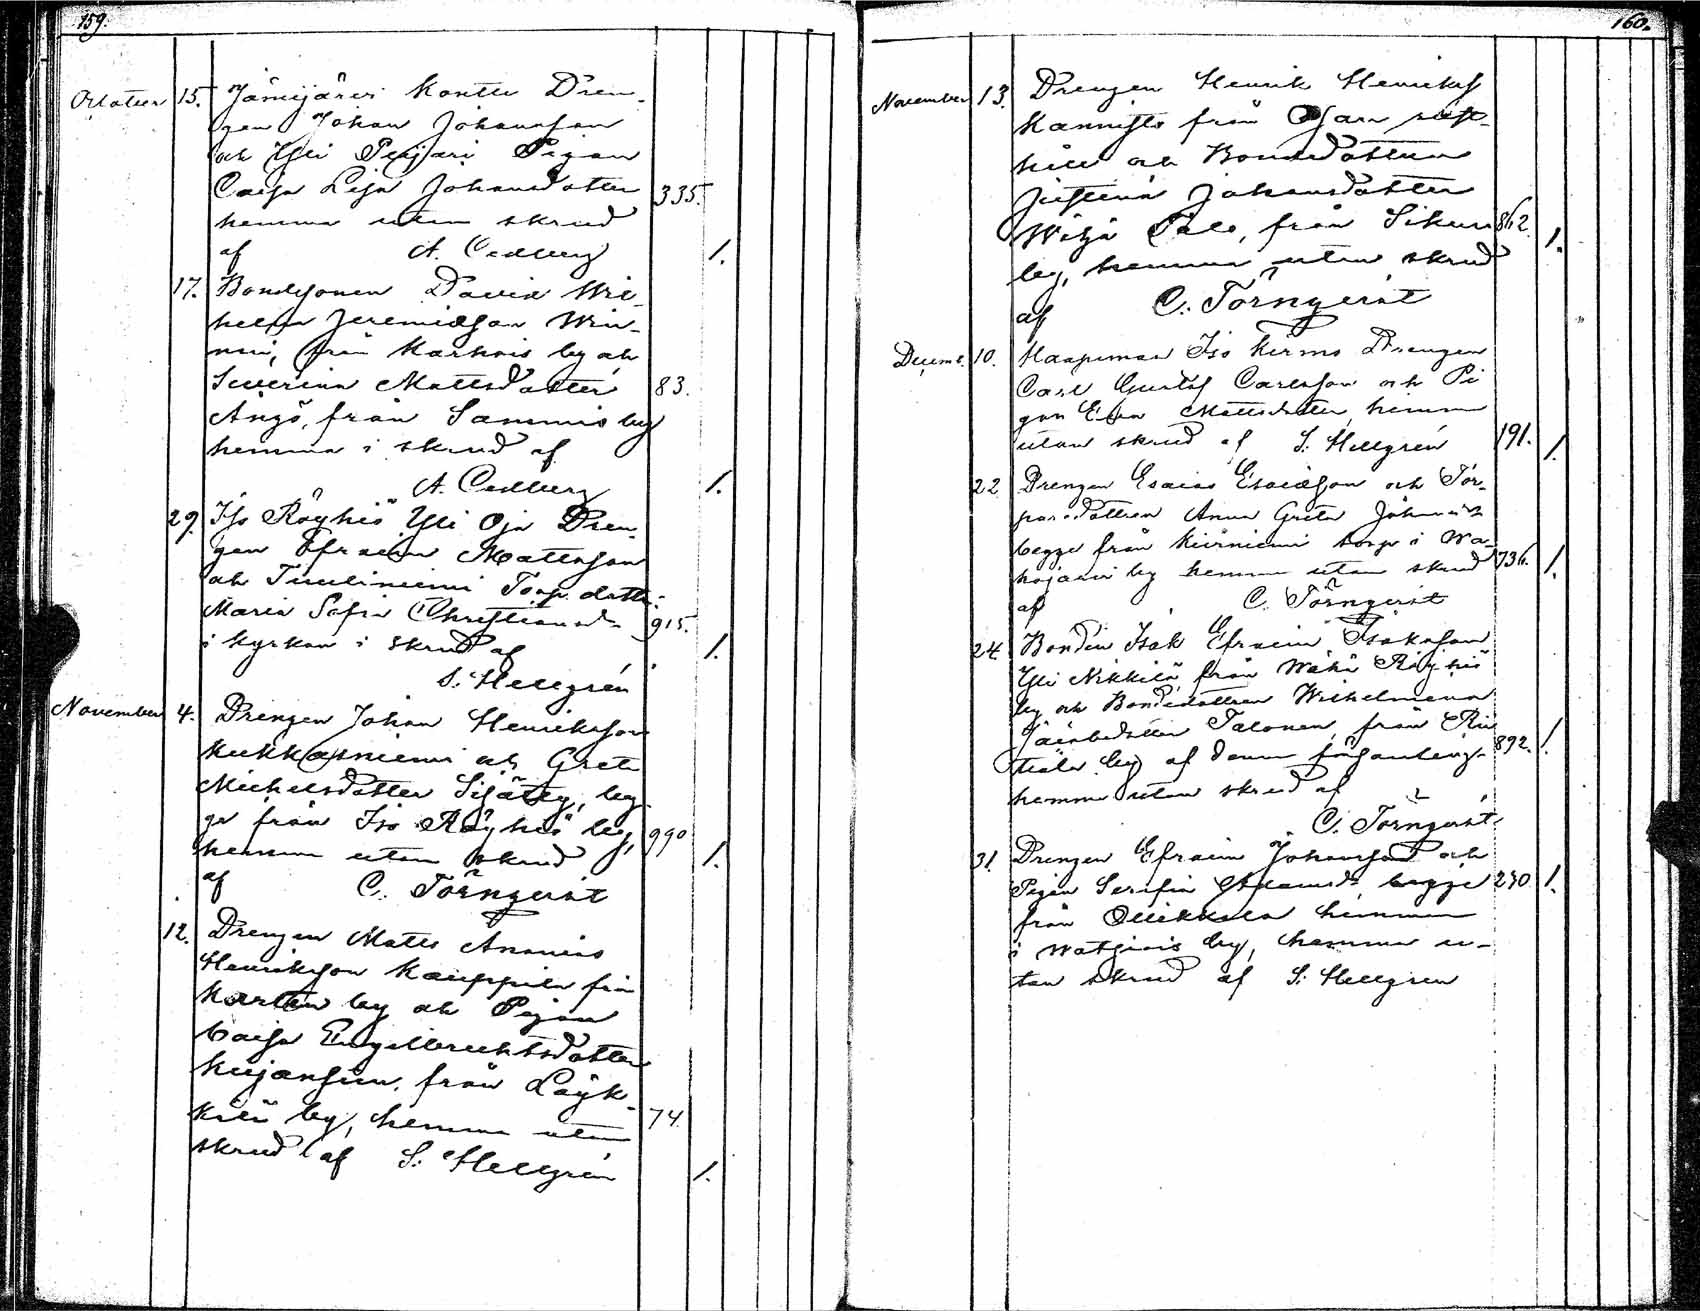 159.
October 15. Jämijärvi Kontti Dren-
gen Johan Johansson
och Yli Peijari Pigan
Caisa Lisa Johansdotter 335.
hemma utan skrud
af A. Cedberg 1.
17. Bondesonen David Wil-
helm Jeremiæson Win-
ni, från Karhois by och
Severina Mattsdotter 83.
Ängö, från Sammis by
hemma i skrud af
A. Cedberg 1.
29. Iso Röyhiö Yli Oja Dren-
gen Efraim Mattsson
och Tuuliniemi Torp. dottr:
Maria Sofia Christiansd. 915.
i kyrkan i skrud af 1.
S. Hellgrén
November 4. Drengen Johan Henriksson
Kukkasniemi och Greta
Michelsdotter Sijäty, beg-
ge från Iso Röyhiö by, 990
hemma utan skrud 1.
af C. Törnqvist
12. Drengen Matts Ananias
Henriksson Kauppila från
Karttu by och Pigan
Caisa Engelbrechtsdotter
Kujansuu, från Löyk-
kilä by, hemma utan 74.
skrud af S. Hellgrén 1.
160.
November 13. Drengen Henrik Henrikss
Kannisto från
och Bondedottren
Justina Johansdotter
Pälo, från Sikuri 862.
by, hemma utan skrud 1.
af C. Törnqvist
Decemb. 10. Haapimaa Iso Kirmo Drengen
Carl Gustaf Carlsson och Pi
gan Eva Mattsdotter, hemma
utan skrud af S. Hellgrén 191. 1.
22 Drengen Esaias Esaiæson och Tor-
paredottren Anna Greta Johansd:r
begge från Kiviniemi torp i Wa-
hojärvi by hemma utan skrud 736. 1.
af C. Törnqvist
24. Bonden Isak Efraim Isaksson
Yli Nikkilä från Wähä Röyhiö
by och Bondedottren Wilhelmina
Jacobsdotter Talonen, från Rii
tiala by af denna församling 892. 1.
hemma utan skrud af
C. Törnqvist.
31. Drengen Efraim Johansson och
Pigan Serafia Adamsdr begge 230 1.
från Ollikkala hemman
i Watjusis by, hemma u-
tan skrud af S. Hellgren